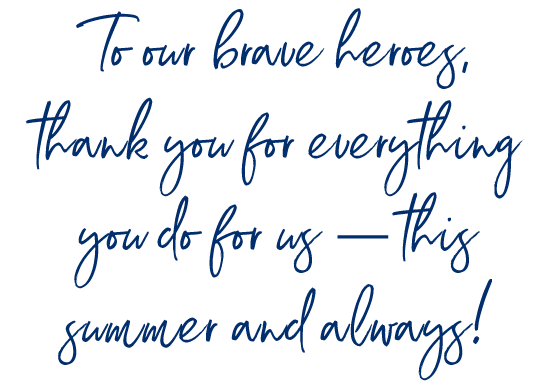 To our brave heroes,
thank you for everything
you do for us — this
summer and always!